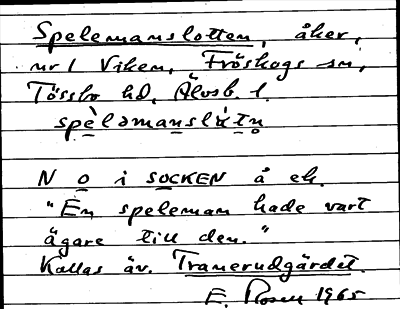 Spelemanslotten, åker,
nr 1 Viken, Fröskogs sn,
Tössbo hd, Älvsb. l.
spèləmanslɷ̀tn̥
N O i SOCKEN å ek.
"En speleman hade vart
ägare till den."
Kallas äv. Tranerudgärdet.
E. Rosen 1965